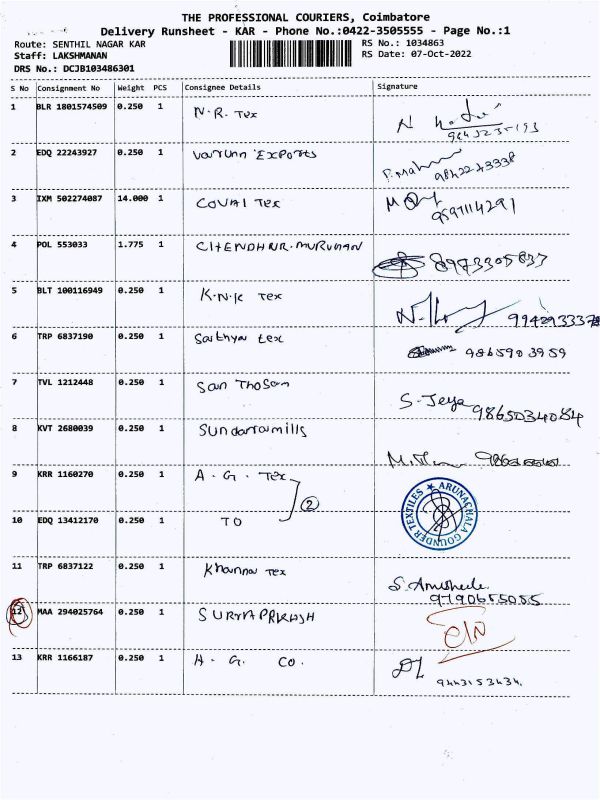 THE PROFESSIONAL COURIERS, Coimbatore
Delivery Runsheet - KAR - Phone No.:0422-3505555 - Page No.:1
Route: SENTHIL NAGAR KAR RS No.: 1034863
Staff: LAKSHMANAN RS Date: 07-Oct-2022
DRS No.: DCJB103486301
S No Consignment No Weight PCS Consignee Details Signature
1 BLR 1801574509 0.250 1 N.R. Tex
2 EDQ 22243927 0.250 1 Exports
9842243338
3 IXM 502274087 14.000 1 COVAI Tex
9597114291
4 POL 553033 1.775 1 8973305837
5 BLT 100116949 0.250 1 K.N.K Tex
6 TRP 6837190 0.250 1 Sathya tex 9865903959
7 TVL 1212448 0.250 1 San Thosam S. Jeya
9865034084
8 KVT 2680039 0.250 1
9 KRR 1160270 0.250 1 A. G. Tex
2
10 EDQ 13412170 0.250 1 TO
ARUNACHALA GOUNDER TEXTILES
11 TRP 6837122 0.250 1 Khanna Tex
9790655085
12 MAA 294025764 0.250 1 SURYAPRKASH
13 KRR 1166187 0.250 1 A. G. CO.
9443153434